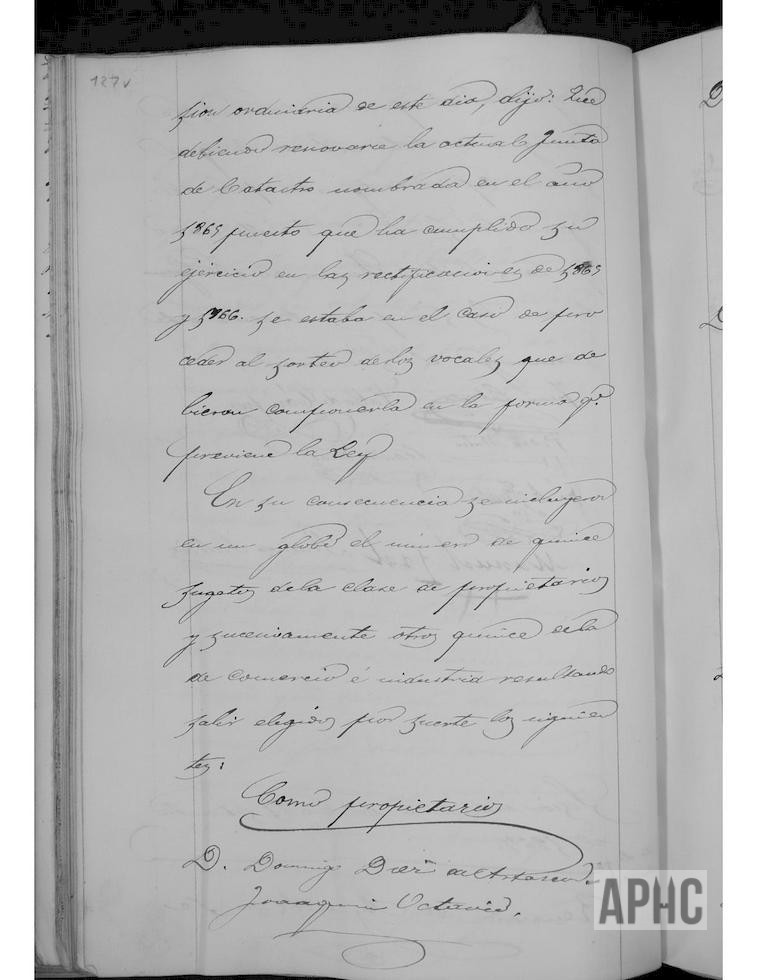 127v
sion ordinaria de este dia, dijo: Que
debiendo renovarse la actual Junta
de Catastro nombrada en el año
1865 puesto que ha cumplido su
ejercicio en las rectificaciones de 1865
y 1866. se estaba en el caso de pro
ceder al sorteo de los vocales que de
bieran componerla en la forma q.e
previene la Ley
En su consecuencia se incluyeron
en un globo el número de quince
sugetos de la clase de propietarios
y sucesivamente otros quince de la
de comercio é industria resultando
salir elegidos por suerte los siguien
tes:
Como propietarios
D. Domingo Diez
Joaquin Octavio.
APHC